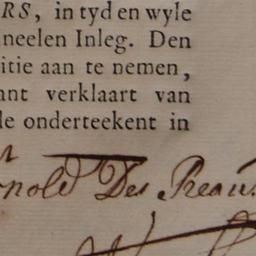 RS, in tyd en wyle
neelen Inleg. Den
itie aan te nemen,
ant verklaart van
le onderteekent in
nold Des Reau